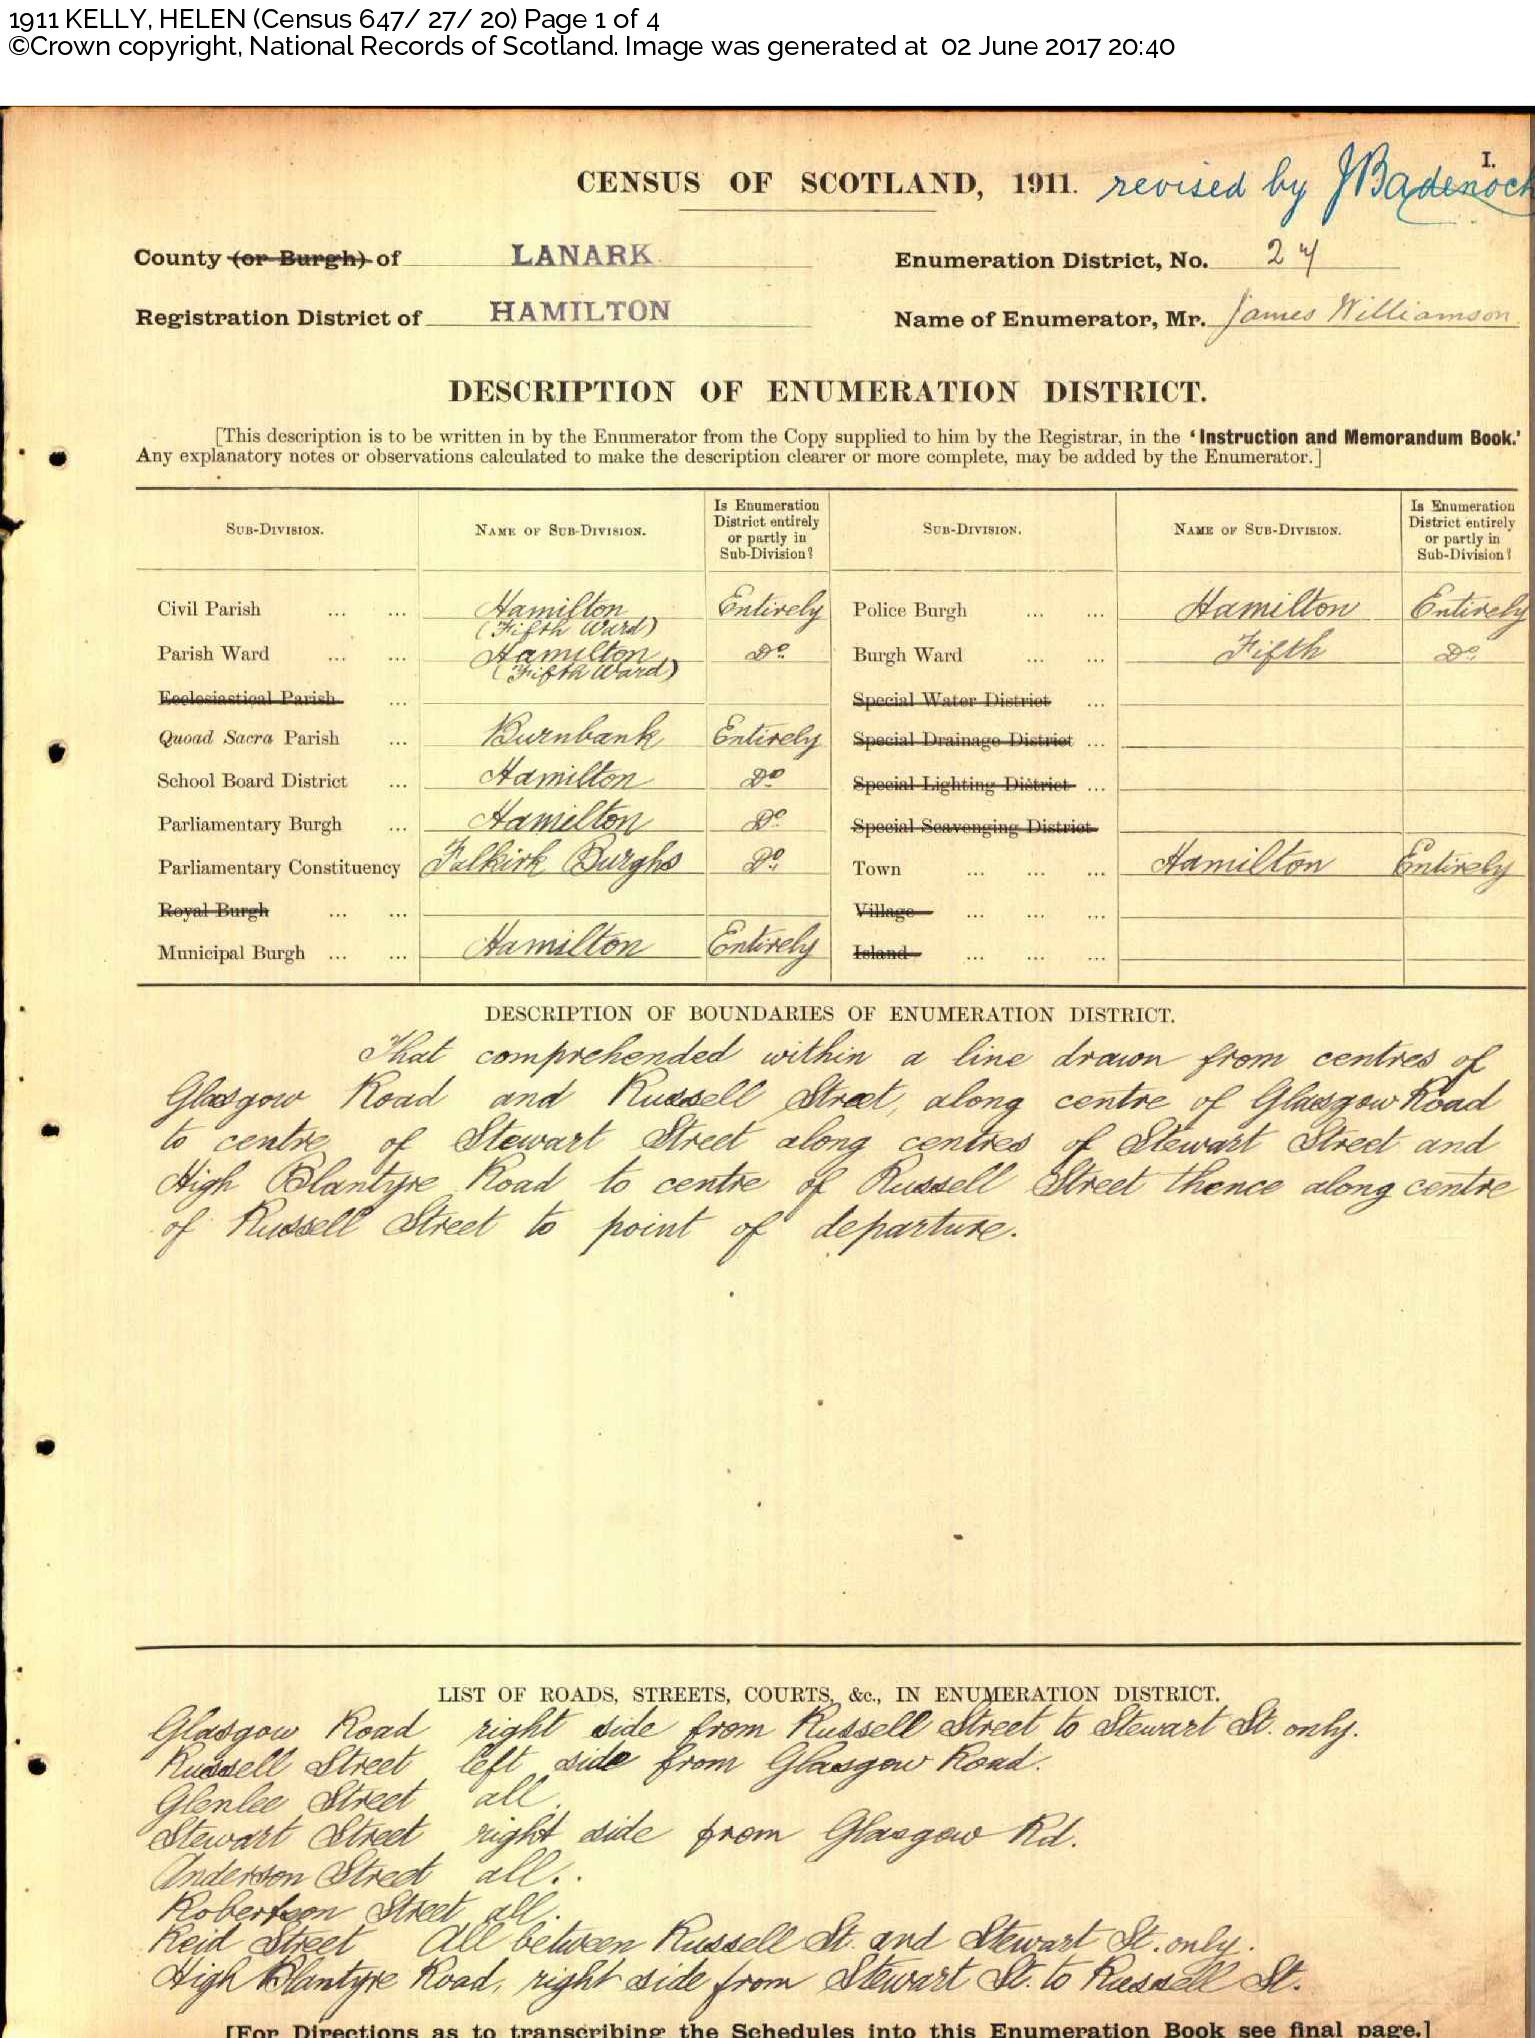 1911 KELLY, HELEN (Census 647/ 27/ 20) Page 1 of 4
©Crown copyright, National Records of Scotland. Image was generated at 02 June 2017 20:40
I.
CENSUS OF SCOTLAND, 1911. revised by JBadenoch
County (or Burgh) of LANARK Enumeration District, No. 27
Registration District of HAMILTON Name of Enumerator, Mr. James Williamson
DESCRIPTION OF ENUMERATION DISTRICT.
[This description is to be written in by the Enumerator from the Copy supplied to him by the Registrar, in the 'Instruction and Memorandum Book.'
Any explanatory notes or observations calculated to make the description clearer or more complete, may be added by the Enumerator.]
SUB-DIVISION. NAME OF SUB-DIVISION. Is Enumeration District entirely or partly in Sub-Division? SUB-DIVISION. NAME OF SUB-DIVISION. Is Enumeration District entirely or partly in Sub-Division?
Civil Parish ... ... Hamilton (Fifth Ward) Entirely Police Burgh ... ... Hamilton Entirely
Parish Ward ... ... Hamilton (Fifth Ward) Do. Burgh Ward ... ... Fifth Do.
Ecclesiastical Parish ... Special Water District ...
Quoad Sacra Parish ... Burnbank Entirely Special Drainage District ...
School Board District ... Hamilton Do Special Lighting District ...
Parliamentary Burgh ... Hamilton Do. Special Scavenging District
Parliamentary Constituency Falkirk Burghs Do. Town ... ... ... Hamilton Entirely
Royal Burgh ... ... Village ... ... ...
Municipal Burgh ... ... Hamilton Entirely Island ... ... ...
DESCRIPTION OF BOUNDARIES OF ENUMERATION DISTRICT.
That comprehended within a line drawn from centres of
Glasgow Road and Russell Street, along centre of Glasgow Road
to centre of Stewart Street along centres of Stewart Street and
High Blantyre Road to centre of Russell Street thence along centre
of Russell Street to point of departure.
LIST OF ROADS, STREETS, COURTS, &c., IN ENUMERATION DISTRICT.
Glasgow Road right side from Russell Street to Stewart St. only.
Russell Street left side from Glasgow Road.
Glenlee Street all.
Stewart Street right side from Glasgow Rd.
Anderson Street all.
Robertson Street all.
Reid Street All between Russell St. and Stewart St. only.
High Blantyre Road, right side from Stewart St. to Russell St.
[For Directions as to transcribing the Schedules into this Enumeration Book see final page.]